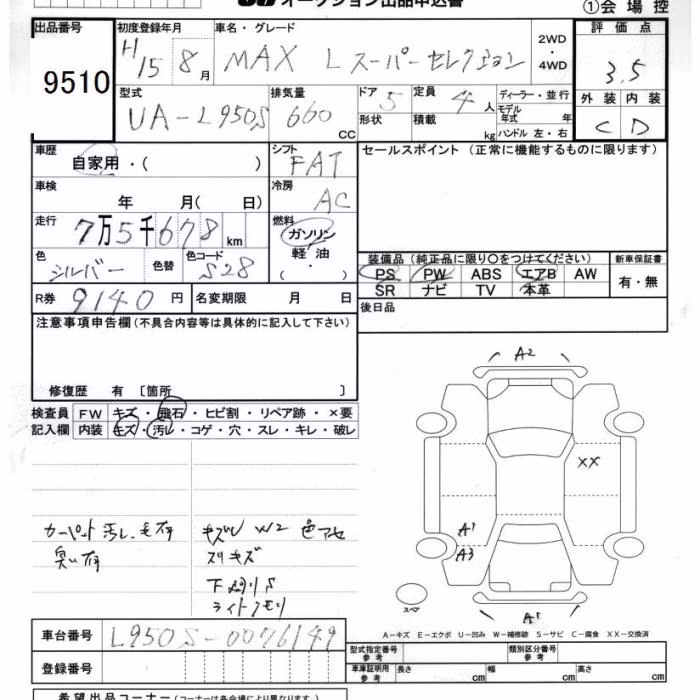 オークション出品申込書
①会場控
出品番号
9510
初度登録年月
H15 8月
車名・グレード
MAX L スーパーセレクション
2WD
・
4WD
評価点
3.5
型式
UA-L950S
排気量
660
CC
ドア
5
定員
4人
形状
積載
kg
ディーラー・並行
モデル年式 年
ハンドル 左・右
外装 内装
C D
車歴
自家用・( )
シフト
FAT
セールスポイント (正常に機能するものに限ります)
車検
年 月( 日)
冷房
AC
走行
7万5千678km
燃料
ガソリン
軽油
( ・ )
色
シルバー
色替
色コード
S28
装備品 (純正品に限り〇をつけてください)
PS PW ABS エアB AW
SR ナビ TV 本革
新車保証書
有・無
R券
9140円
名変期限 月 日
後日品
注意事項申告欄 (不具合内容等は具体的に記入して下さい)
修復歴 有 〔箇所 〕
検査員
記入欄
FW キズ・飛石・ヒビ割・リペア跡・×要
内装 キズ・汚レ・コゲ・穴・スレ・キレ・破レ
カーペット汚レ.毛有
臭い有
キズU W2 色アセ
スリキズ
下廻りS
ライトクモリ
A2
XX
A1
A3
A1
スペア
A−キズ E−エクボ U−凹み W−補修跡 S−サビ C−腐食 XX−交換済
車台番号
L950S-0076149
登録番号
型式指定番号
参考
類別区分番号
参考
車庫証明用
参考
長さ cm
幅 cm
高さ cm
希望出品コーナー (コーナーは各会場により異なります)